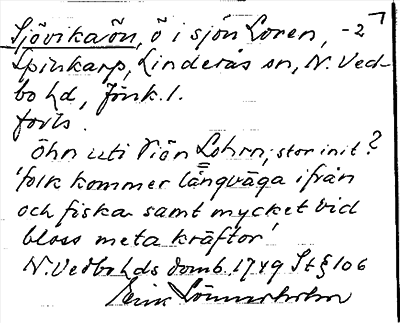 Sjövikaön, ö i sjön Loren, -2⁷
Spinkarp, Linderås sn, N. Ved-
bo hd, Jönk. l.
forts.
öhn uti Siön Lohrn; stor init?
'folk kommer långväga ifrån
och fiska samt mycket vid
bloss meta kräftor'
N. Vedbo hds domb. 1749 St § 106
Erik